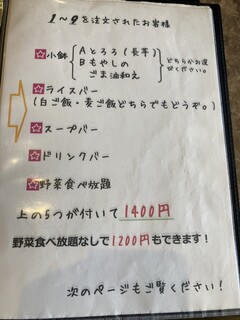 1〜9を注文されたお客様
☆小鉢 Aとろろ(長芋)
Bもやしの
ごま油和え
どちらかお選
びください。
☆ライスバー
(白ご飯・麦ご飯どちらでもどうぞ。)
☆スープバー
☆ドリンクバー
☆野菜食べ放題
上の5つが付いて1400円
野菜食べ放題なしで1200円もできます!
次のページもご覧ください!